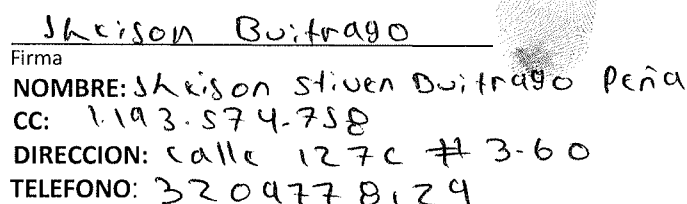 Jheison Buitrago
Firma
NOMBRE: Jheison Stiven Buitrago Peña
CC: 1.193.574.758
DIRECCION: Calle 127c # 3-60
TELEFONO: 3209778129